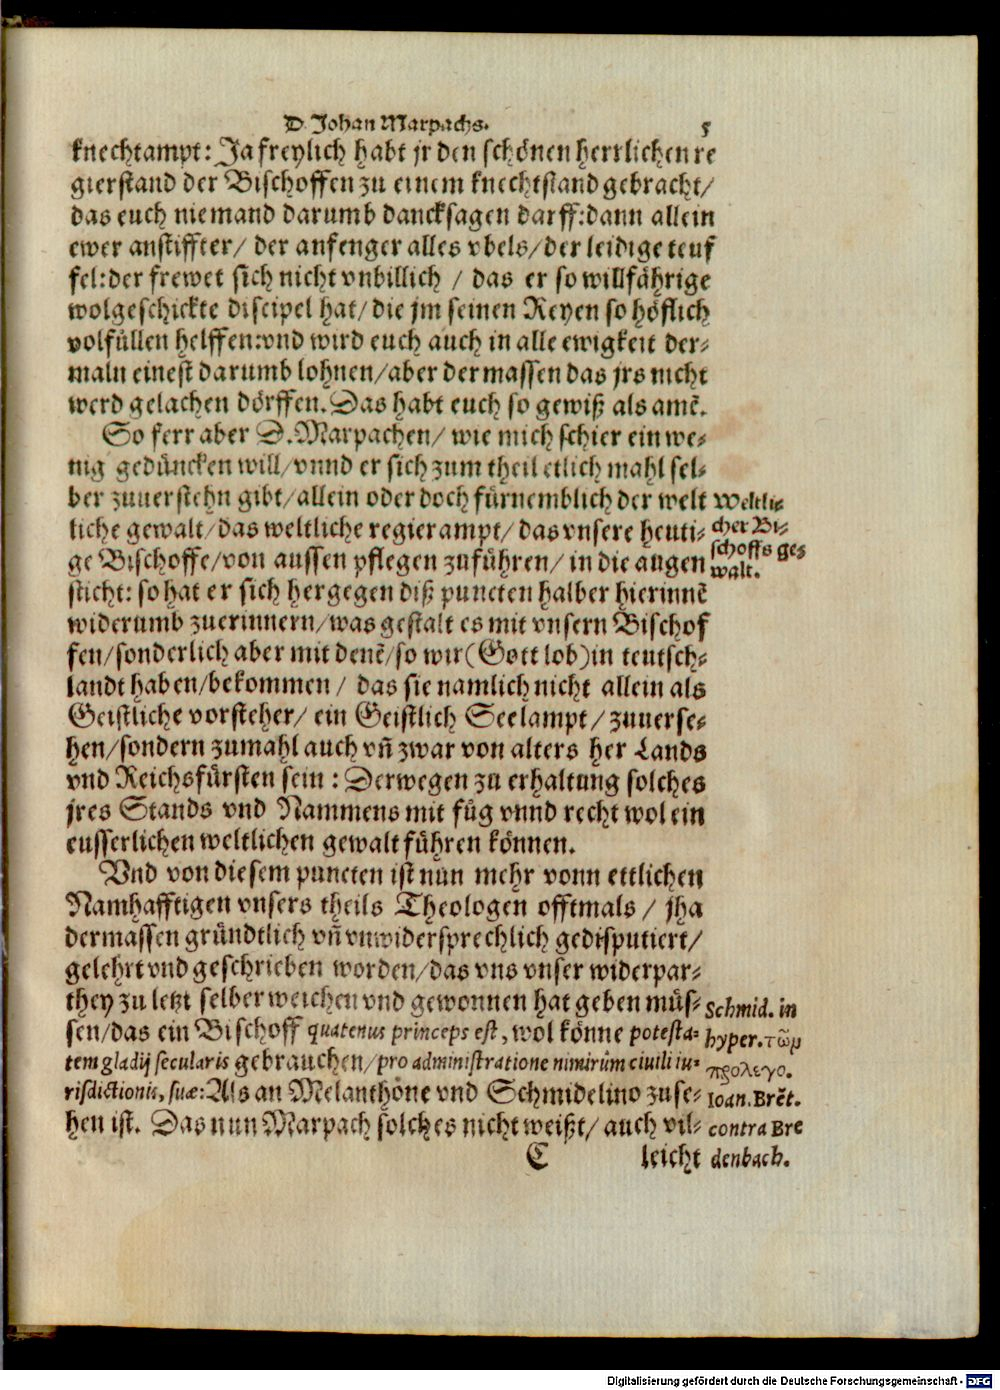 D. Johan Marpachs. 5
knechtampt: Ja freylich habt jr den schönen herrlichen re
gierstand der Bischoffen zu einem knechtstand gebracht/
das euch niemand darumb dancksagen darff: dann allein
ewer anstiffter/ der anfenger alles vbels/ der leidige teuf
fel: der frewet sich nicht vnbillich / das er so willfährige
wolgeschickte discipel hat/ die jm seinen Reyen so höflich
volfüllen helffen: vnd wird euch auch in alle ewigkeit der-
maln einest darumb lohnen/ aber dermassen das jrs nicht
werd gelachen dörffen. Das habt euch so gewiß als amē.
So ferr aber D. Marpachen/ wie mich schier ein we-
nig gedüncken will/ vnnd er sich zum theil etlich mahl sel-
ber zuuerstehn gibt/ allein oder doch fürnemblich der welt
liche gewalt/ das weltliche regierampt/ das vnsere heuti-
ge Bischoffe/ von aussen pflegen zuführen/ in die augen
sticht: so hat er sich hergegen diß puncten halber hierinnē
widerumb zuerinnern/ was gestalt es mit vnsern Bischof
fen/ sonderlich aber mit denē/ so wir (Gott lob) in teutsch-
landt haben/ bekommen / das sie namlich nicht allein als
Geistliche vorsteher/ ein Geistlich Seelampt/ zuuerse-
hen/ sondern zumahl auch vñ zwar von alters her Lands
vnd Reichsfürsten sein : Derwegen zu erhaltung solches
jres Stands vnd Nammens mit füg vnnd recht wol ein
eusserlichen weltlichen gewalt führen können.
Vnd von diesem puncten ist nun mehr vonn ettlichen
Namhafftigen vnsers theils Theologen offtmals / jha
dermassen gründtlich vñ vnwidersprechlich gedisputiert/
gelehrt vnd geschrieben worden/ das vns vnser widerpar-
they zu letzt selber weichen vnd gewonnen hat geben müs-
sen/ das ein Bischoff quatenus princeps est, wol könne potesta-
tem gladij secularis gebrauchen/ pro administratione nimirùm ciuili iu-
risdictionis, suæ: Als an Melanthöne vnd Schmidelino zuse-
hen ist. Das nun Marpach solches nicht weißt/ auch vil-
C leicht
Weltli-
cher Bi-
schoffs ge-
walt.
Schmid. in
hyper. τῶμ
προλεγο.
Ioan. Brēt.
contra Bre
denbach.
Digitalisierung gefördert durch die Deutsche Forschungsgemeinschaft - DFG